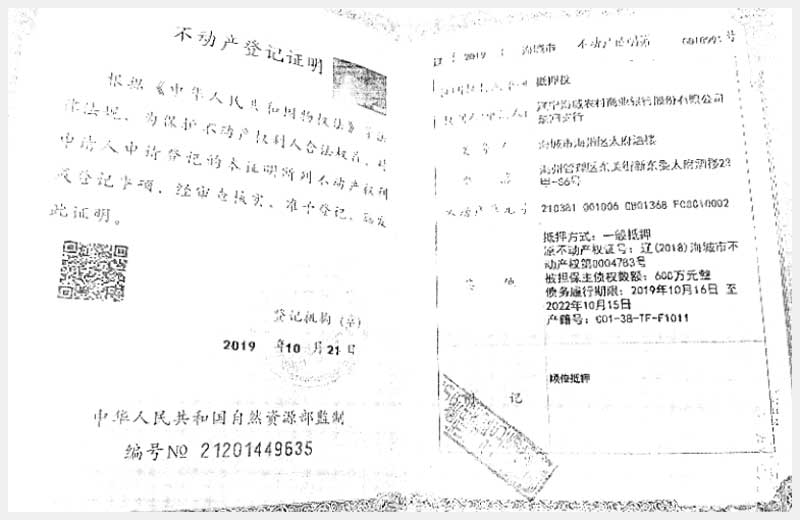 不动产登记证明
根据《中华人民共和国物权法》等法
律法规，为保护不动产权利人合法权益，对
申请人申请登记的本证明所列不动产权利
及登记事项，经审查核实，准予登记，颁发
此证明。
登记机构（章）
2019 年10 月21日
中华人民共和国自然资源部监制
编号№ 21201449635
辽（ 2019 ）海城市 不动产证明第 号
抵押权
农村商业银行股份有限公司
支行
海城市海州区太府酒楼
义务人
海州管理区东美街新东委太府酒楼
210381 001006 GB01368 F00010002
抵押方式：一般抵押
原不动产权证号：辽(2018)海城市不
动产权第0004783号
被担保主债权数额：600万元整
债务履行期限：2019年10月16日 至
2022年10月15日
产籍号：C01-38-TF-F1011
附 记
顺位抵押